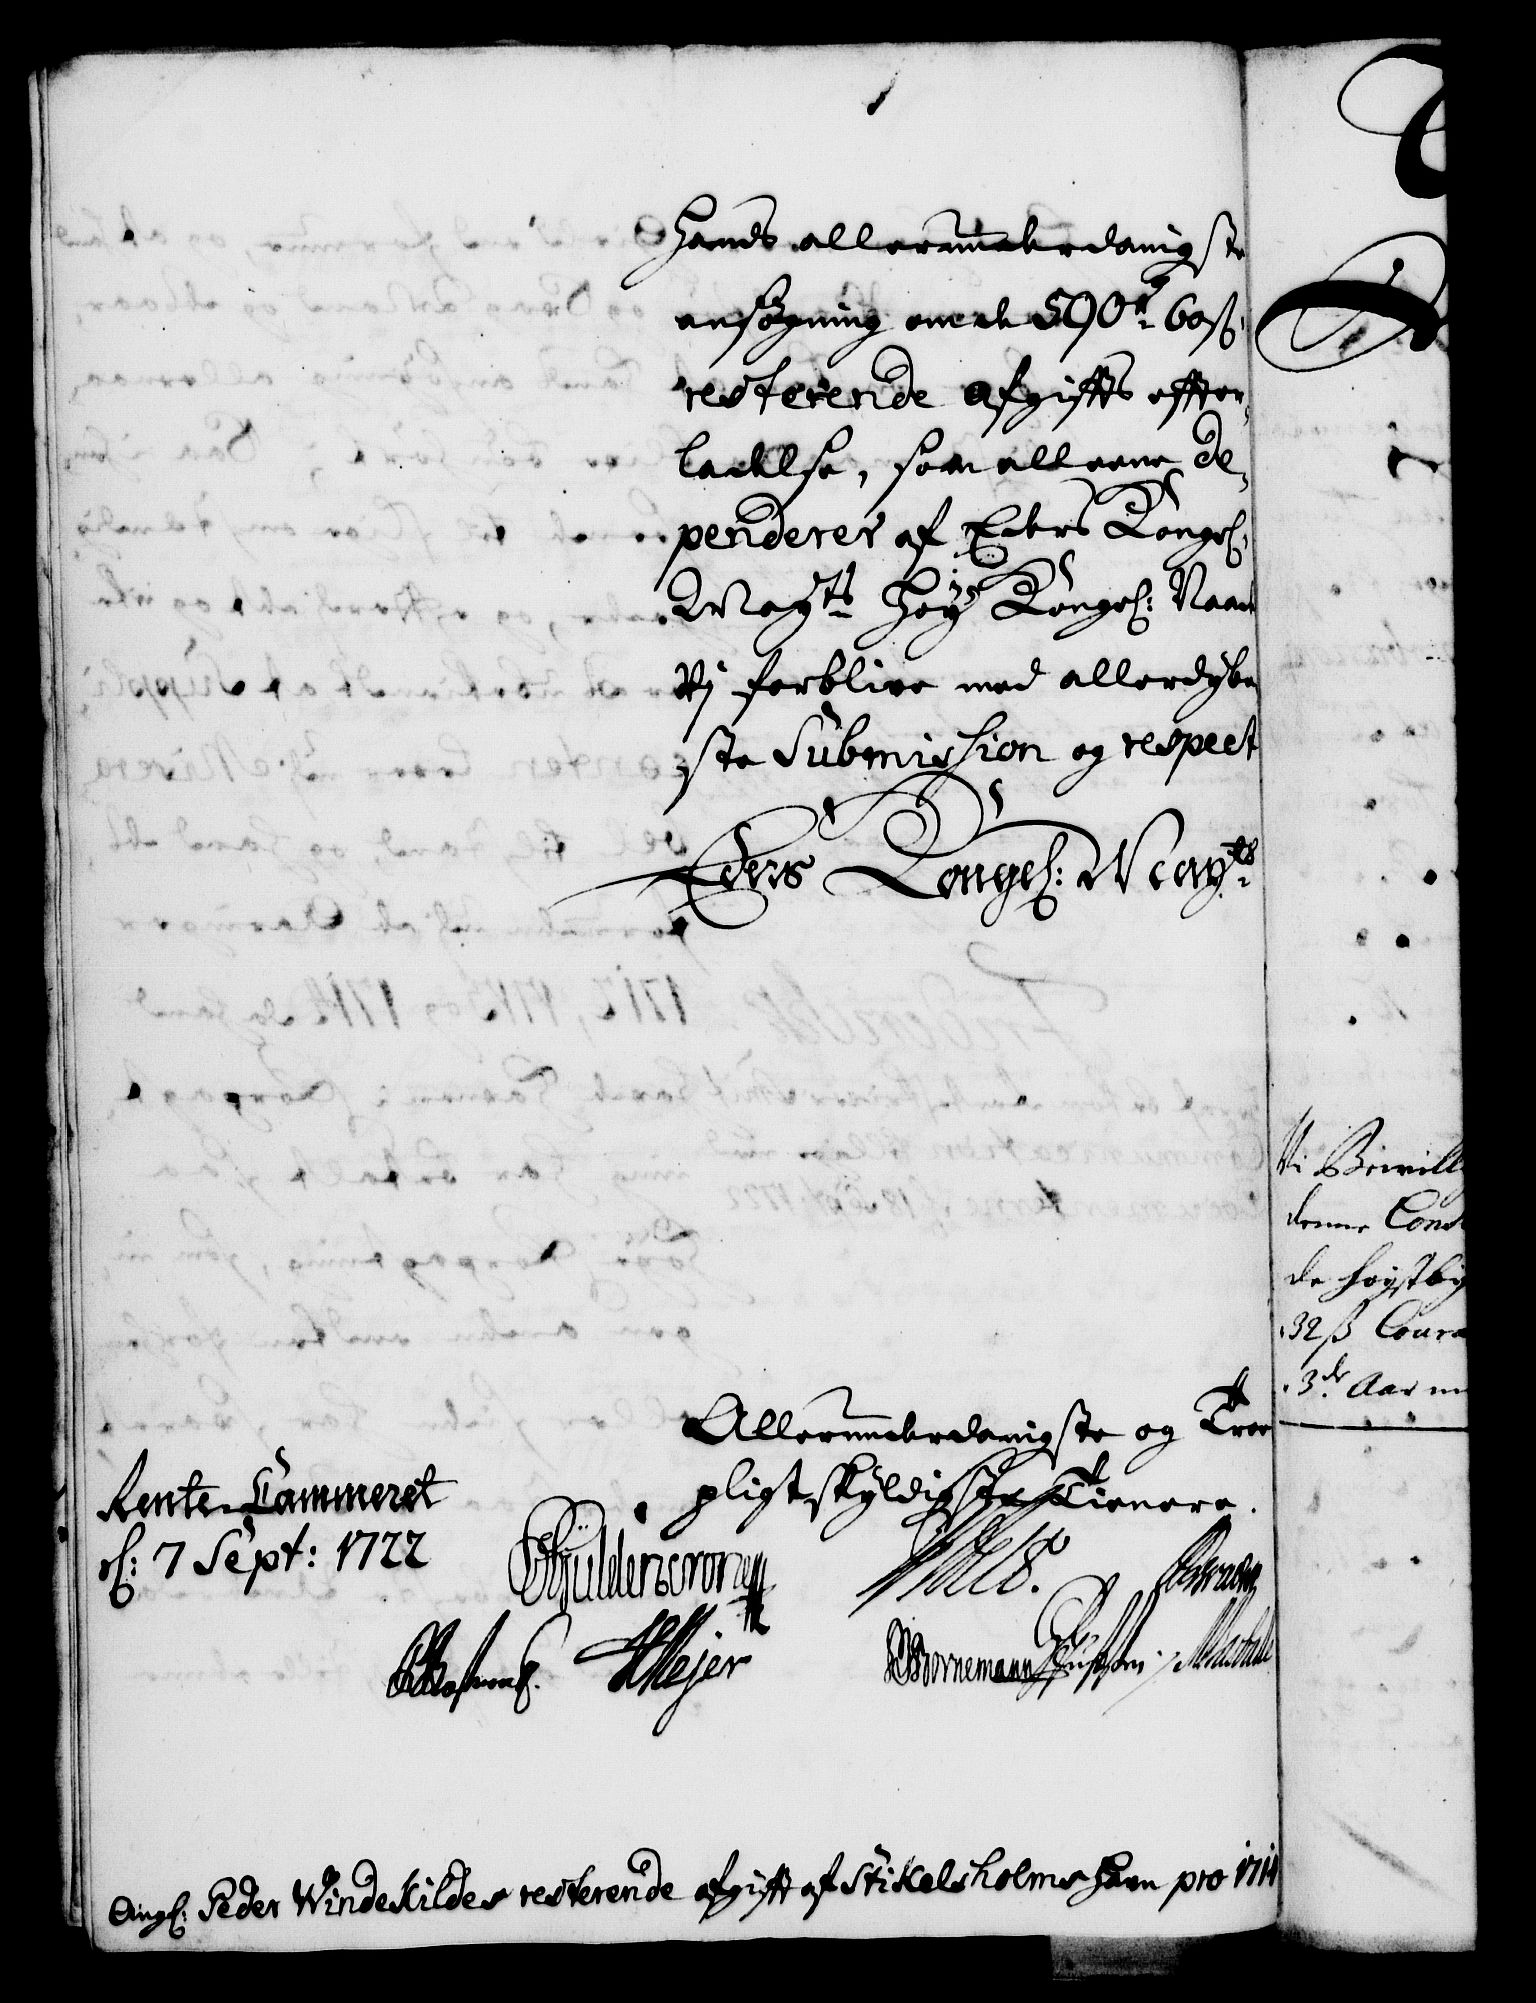 hands allerunderdanigste
ansøgning om de 590 rd 60 ß
resterende afgiffts effter-
ladelse, som alleene de-
penderer af Eders Kongel:
Mayts høy Kongel: Naade
Vi forblive med allerdybe
ste Submission og respect
Eders Kongel: Mayts
Allerunderdanigste og Troe
pligtskyldigste Tienere.
Rente Cammeret
d: 7 Sept: 1722
Güldencrone
HMejer
Bornemann
Ang: Peder Windekildes resterende afgifft af Stikelsholms havn pro 1714
Vi Bevill
denne Cons
de høystby
32 ß Coura
3de Aar